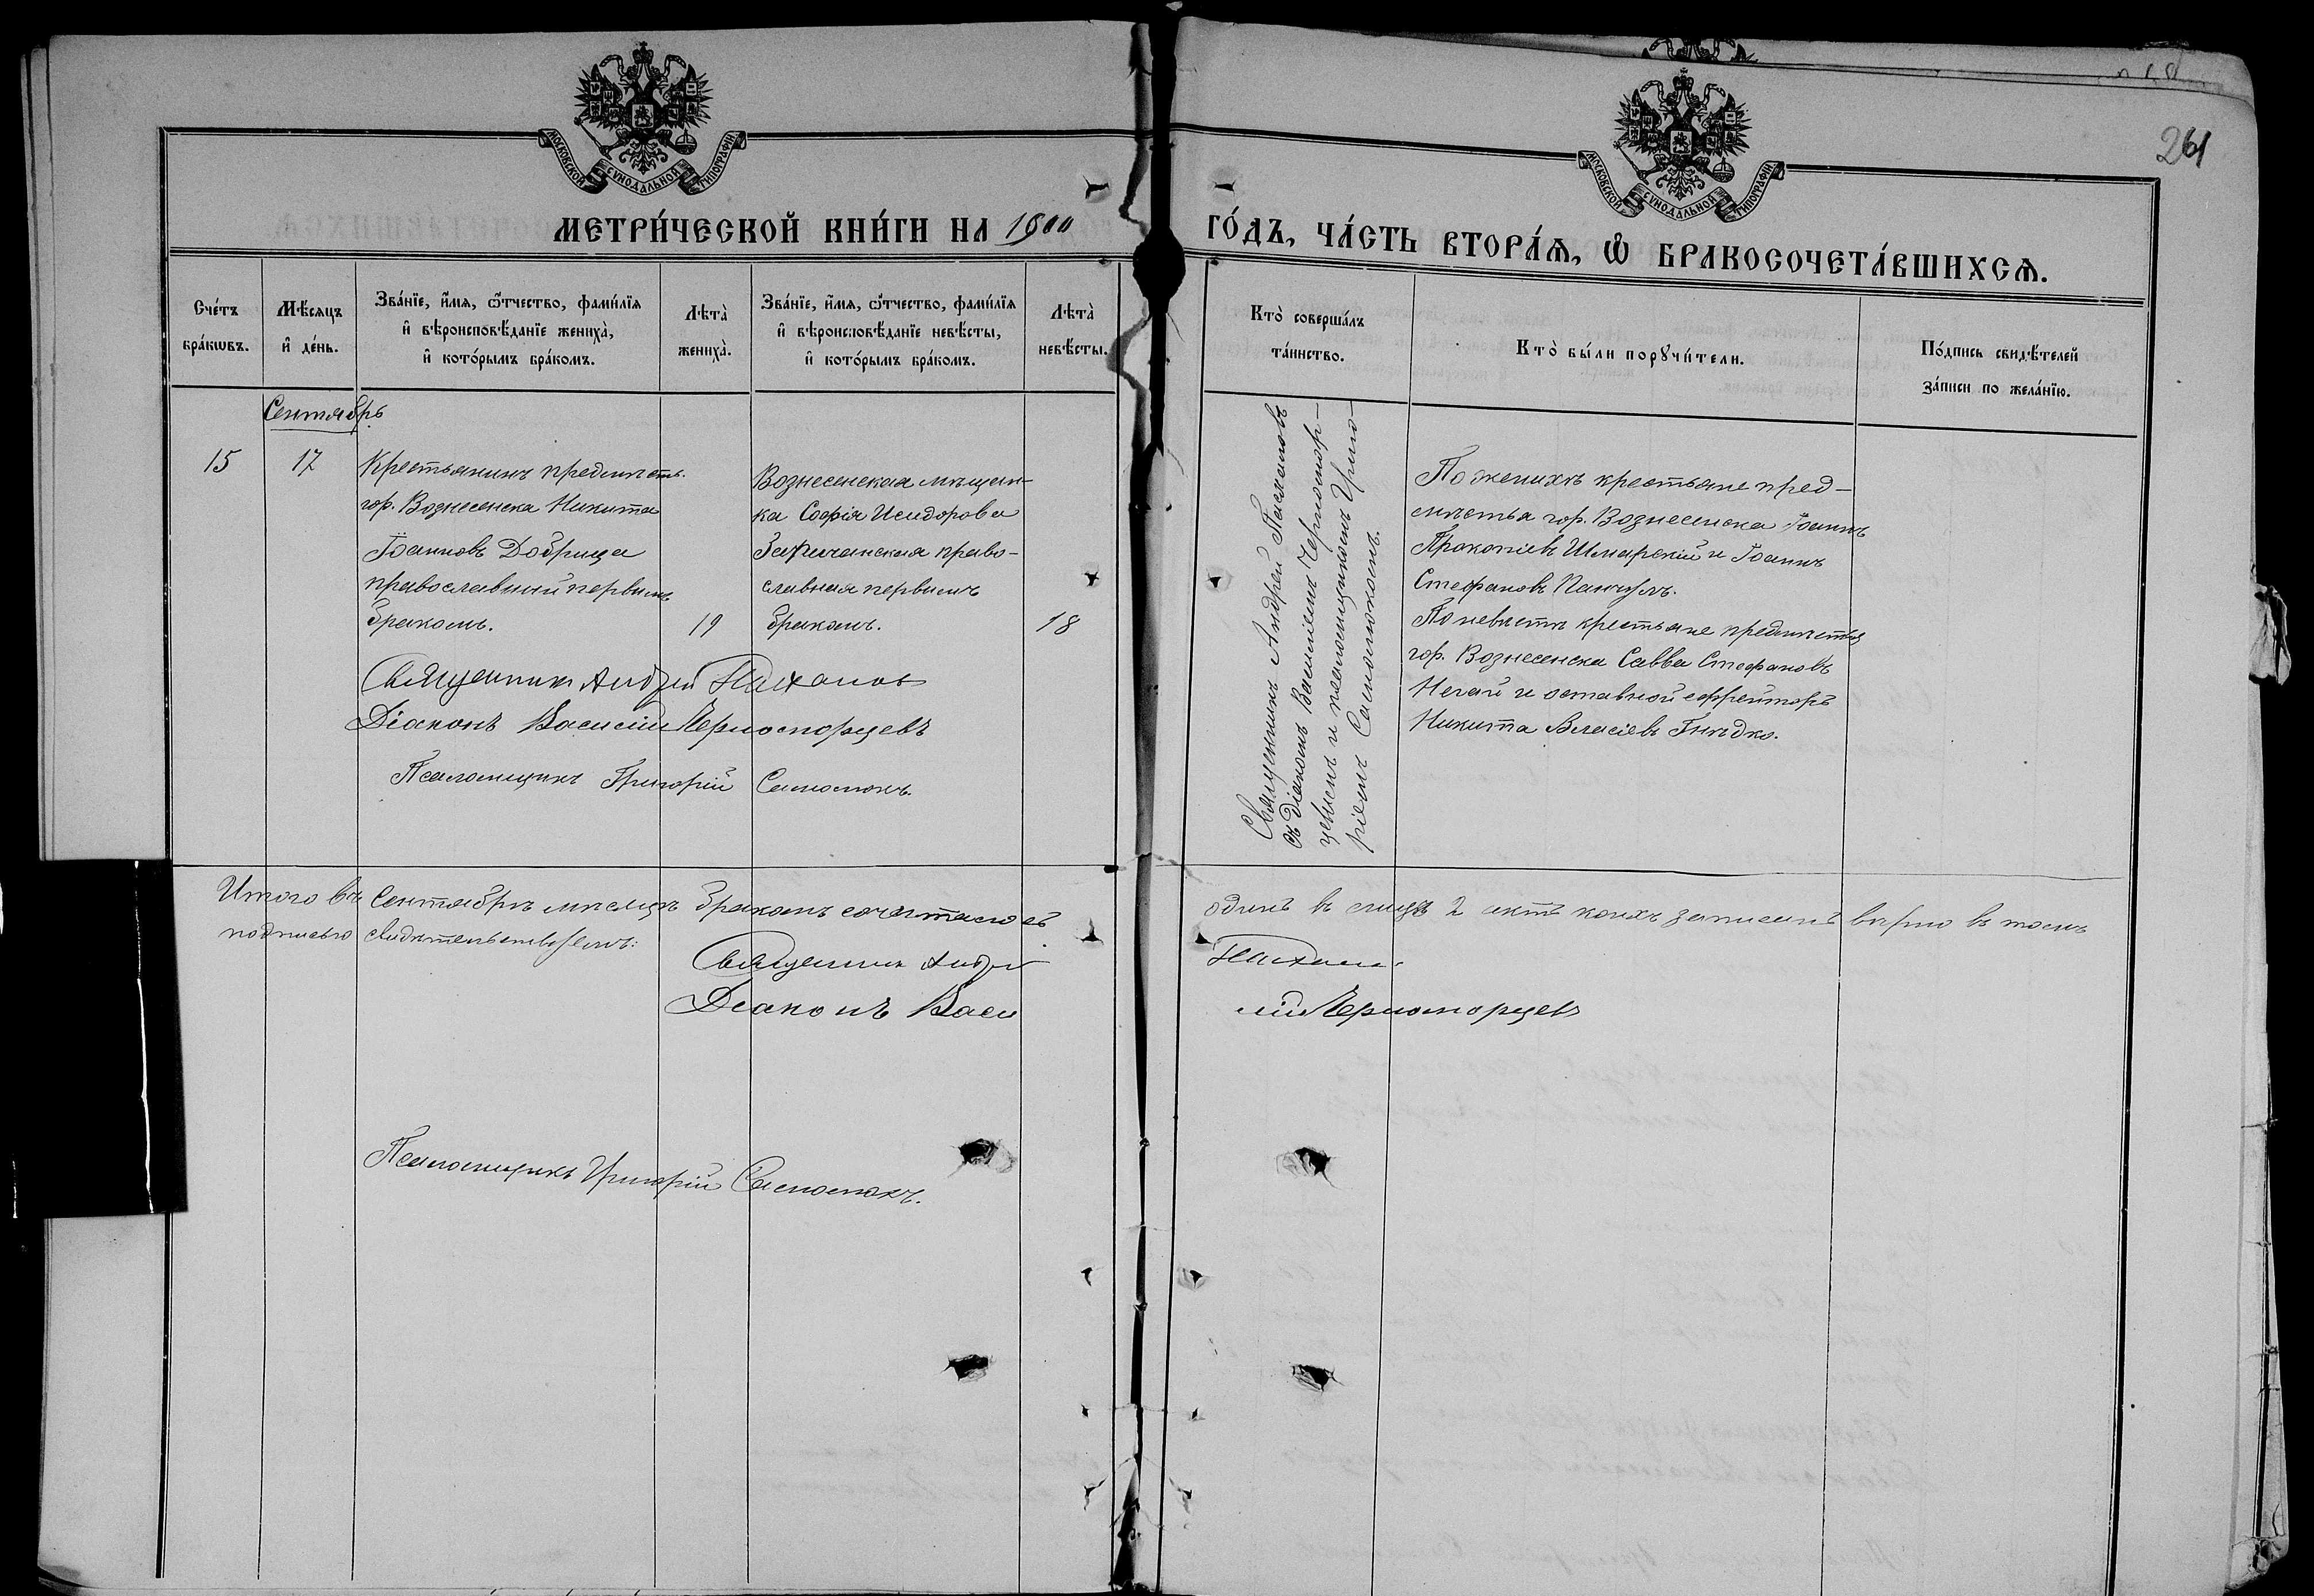 МОСКОВСКОЙ СѴНОДАЛЬНОЙ ТИПОГРАФІИ
МОСКОВСКОЙ СѴНОДАЛЬНОЙ ТИПОГРАФІИ
261
МЕТРИ́ЧЕСКОЙ КНИ́ГИ НА 1900
ГО́ДЪ, ЧА́СТЬ ВТОРА́Ѧ, Ѽ БРАКОСОЧЕТА́ВШИХСѦ.
Сче́тъ
бра́кѡвъ.
Мѣ́сяцъ
и҆ де́нь.
Зва́нїе, и҆́мя, ѻ҆́тчество, фами́лїя
и҆ вѣроисповѣ́данїе жениха̀,
и҆ кото́рымъ бра́комъ.
Лѣта̀
жениха̀.
Зва́нїе, и҆́мя, ѻ҆́тчество, фами́лїя
и҆ вѣроисповѣ́данїе невѣ́сты,
и҆ кото́рымъ бра́комъ.
Лѣта̀
невѣ́сты.
Кто̀ соверша́лъ
та́инство.
Кто̀ бы́ли порꙋчи́тели.
По́дпись свидѣ́телей
за́писи по жела́нїю.
Сентябрь
15
17
Крестьянинъ предмѣсть.
гор. Вознесенска Никита
Іоанновъ Добрица
православный первымъ
бракомъ.
19
Вознесенская мѣщан-
ка Софія Исидорова
право-
славная первымъ
бракомъ.
18
Священникъ Андрей
съ діакономъ Василіемъ Черномор-
цевымъ и псаломщикомъ Григо-
ріемъ Самолюкомъ.
По женихѣ крестьяне пред-
мѣстья гор. Вознесенска Іоаннъ
Прокопіевъ Шмарскій и Іоаннъ
Стефановъ
По невѣстѣ крестьяне предмѣстья
гор. Вознесенска Савва Стефановъ
Негай и оставной ефрейторъ
Никита Власіевъ Гнѣдко.
Священникъ Андрей
Діаконъ Василій Черноморцевъ
Псаломщикъ Григорій Самолюкъ.
Итого въ Сентябрѣ мѣсяцѣ бракомъ сочеталось
одинъ въ 2 актъ коихъ записанъ вѣрно въ томъ
подписью свидѣтельствуемъ:
Священникъ Андрей
Діаконъ Васи
лій Черноморцевъ
Псаломщикъ Григорій Самолюкъ.